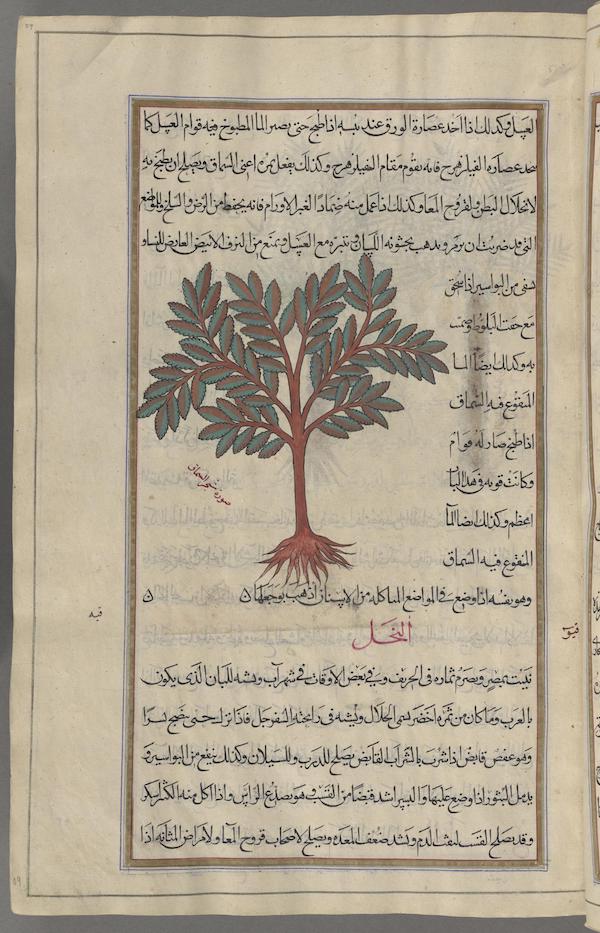 العسل وكذلك اذا اخذ عصارة الورق عند يبسه اذا طبخ حتى يصير الماء المطبوخ فيه قوام العسل كما
عصارة الفيلزهرج فانه يقوم مقام الفيلزهرج وكذلك يفعل ثمره اعنى السماق ويصلح ان يطبخ به
لانحلال البطن ولقروح المعا وكذلك اذا عمل منه ضمادا الاورام فانه يحفظ من الرض والسلخ والمواضع
التى قد ضربت ان ترم ويذهب بخشونة اللسان مع العسل ويمنع من النزف الابيض العارض للنساء
من البواسير اذا سحق
مع جفت البلوط وضمد
به وكذلك ايضا الماء
المنقوع فيه السماق
اذا طبخ صار له قوام
وكانت قوته فى هذا الباب
اعظم وكذلك ايضا الماء
المنقوع فيه السماق
صورة شجر السماق
وهو بنفسه اذا وضع فى المواضع المتاكله من الاسنان اذهب بوجعها
النخل
ينبت بمصر ويصرم ثماره فى الخريف وفى بعض الاوقات فى شهر آب ويشبه للبان الذى يكون
بالعرب وما كان من ثمره اخضر يسمى الخلال ويشبه فى رايحته السفرجل فاذا ترك حتى ينضج يسمى بسرا
وهو عفص قابض اذا شرب بالشراب القابض يصلح للدرب وللسيلان وكذلك ينفع من البواسير و
يدمل البثور اذا وضع عليها والبسر اشد قبضا من القسب وهو يصدع الراس واذا اكل منه الكثير اسكر
وقد يصلح القسب لنفث الدم ويشد ضعف المعده ويصلح لاصحاب قروح المعا ولامراض المثانه اذا